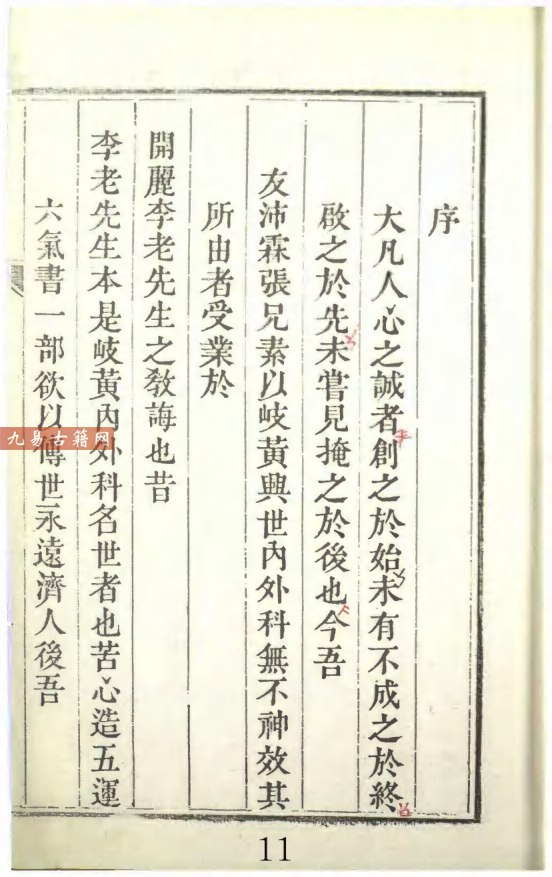 序
大凡人心之誠者創之於始未有不成之於終
啟之於先未嘗見掩之於後也今吾
友沛霖張兄素以岐黃興世內外科無不神效其
所由者受業於
開麗李老先生之教誨也昔
李老先生本是岐黃內外科名世者也苦心造五運
六氣書一部欲以傳世永遠濟人後吾
九易古籍网
11